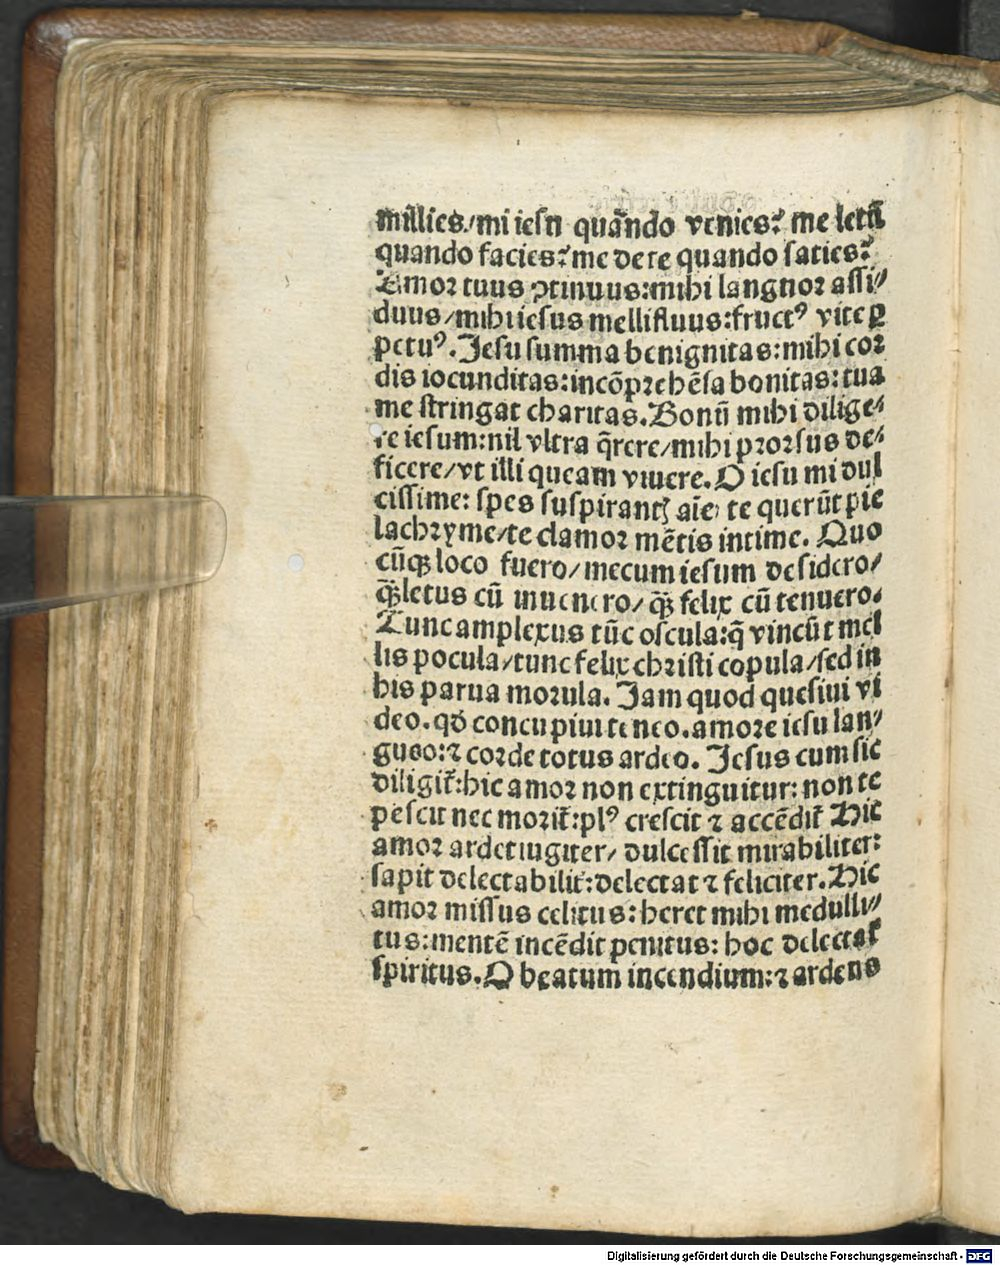 millies/mi iesu quãndo venies? me letũ
quando facies? me de te quando saties?
Amor tuus ꝯtinuus:mihi languor assi⸗
duus/mihi iesus mellifluus:fructꝰ vite ꝑ
petuꝰ. Jesu summa benignitas:mihi cor
dis iocunditas:incõprehẽsa bonitas:tua
me stringat charitas. Bonũ mihi dilige⸗
re iesum:nil vltra q̃rere/mihi prorsus de⸗
ficere/vt illi queam viuere. O iesu mi dul
cissime: spes suspirantꝭ aĩe: te querũt pie
lachryme/te clamor mẽtis intime. Quo
cũqꝫ loco fuero/mecum iesum desidero/
q̃ꝫ letus cũ inuenero/ q̃ꝫ felix cũ tenuero.
Tunc amplexus tũc oscula:q̃ vincũt mel
lis pocula/tunc felix christi copula/sed in
his parua morula. Jam quod quesiui vi
deo. qđ concupiui teneo. amore iesu lan⸗
gueo:⁊ corde totus ardeo. Jesus cum sic
diligit̃:hic amor non extinguitur: non te
pescit nec morit̃:plꝰ crescit ⁊ accẽdit̃ Hic
amor ardet iugiter/ dulcessit mirabiliter:
sapit delectabilit̃:delectat ⁊ feliciter. Hic
amor missus celitus: heret mihi medulli⸗
tus:mentẽ incẽdit penitus: hoc delectat̃
spiritus. O beatum incendium:⁊ ardens
Digitalisierung gefördert durch die Deutsche Forschungsgemeinschaft - DFG